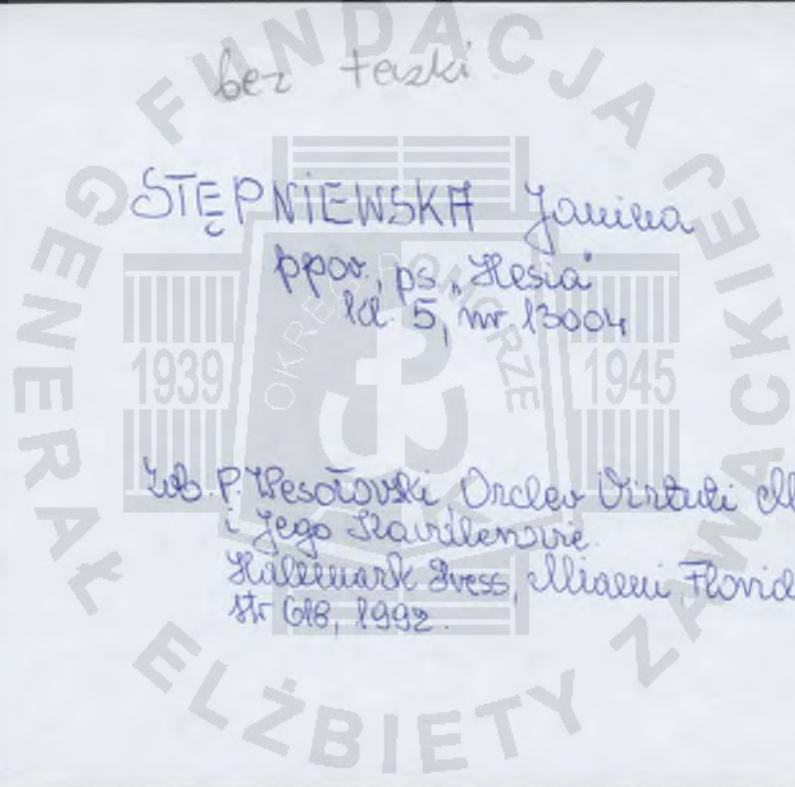 bez teczki
STĘPNIEWSKA Janina
ppor., ps. „Hesia"
kl. 5, nr. 13004
Zob. P. Wesołowski Order Virtuti M
i Jego Kawilerowie.
Hallmark Press, Miami, Florid
str 618, 1992.
FUNDACJA
GENERAŁ
ELŻBIETY
ZAWACKIEJ
1939
1945
OKRĘG POMORZE